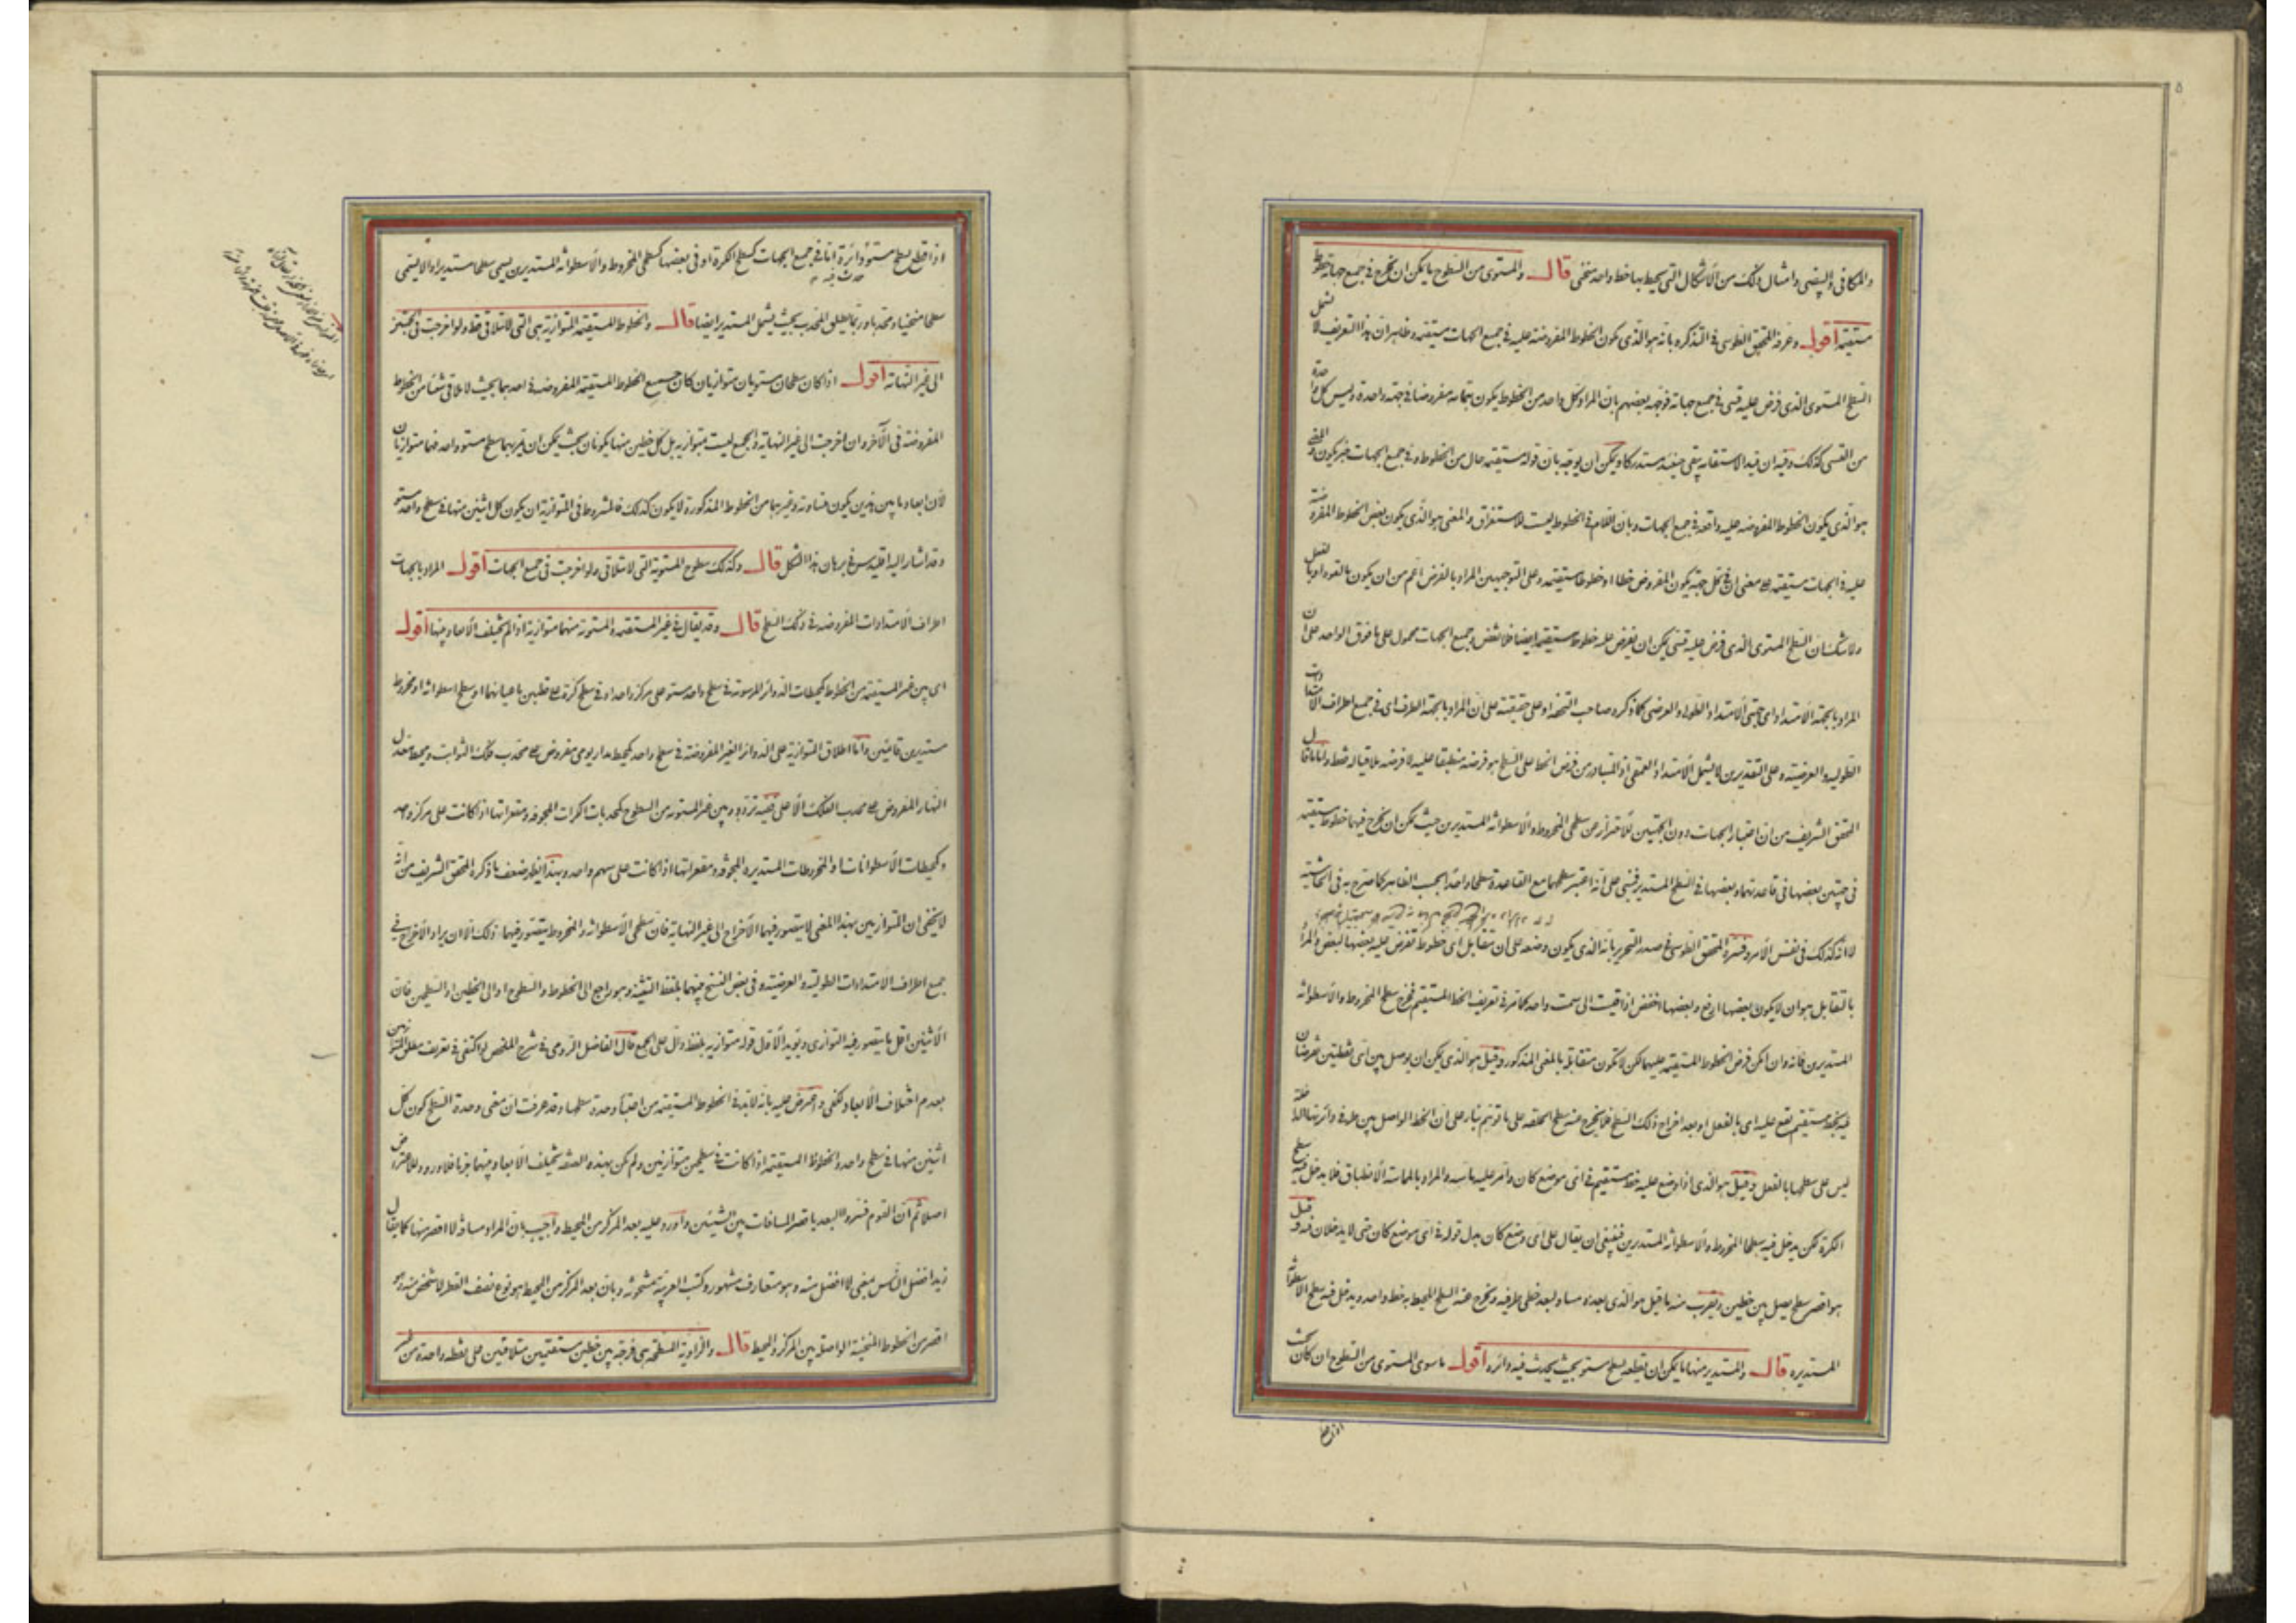 والمكافى والبيضى وامثال ذلك من الاشكال التى يحيط بها خط واحد منحنى قال والمستوى من السطوح ما يمكن ان يخرج فى جميع جهاته خطوط
مستقيمة اقول وعرفه المحقق الطوسى فى التذكره بانه هو الذى يكون الخطوط المفروضة عليه فى جميع الجهات مستقيمه وظاهر ان هذا التعريف لا يشمل
السطح المستوى الذى فرض عليه قسى فى جميع جهاته فوجهه بعضهم بان المراد كل واحد من الخطوط يكون بتمامه مفروضا فى جهة واحدة وليس كل واحدة
من القسى كذلك وفيه ان قيد الاستقامه يبقى حينئذ مستدركا ويمكن ان يوجه بان قوله مستقيمه حال من الخطوط وفى جميع الجهات خبر يكون والمعنى
هو الذى يكون الخطوط المفروضه عليه واقعة فى جميع الجهات وبان اللام فى الخطوط ليست للاستغراق والمعنى هو الذى يكون بعض الخطوط المفروضة
عليه فى الجهات مستقيمه على معنى ان فى كل جهة يكون المفروض خطا او خطوطا مستقيمه وعلى التوجيهين المراد بالفرض اعم من ان يكون بالقوه او بالفعل
ولا شك ان السطح المستوى الذى فرض عليه قسى يمكن ان يفرض عليه خطوط مستقيمة ايضا فلا نقض وجميع الجهات محمول على ما فوق الواحد على ان
المراد بالجهة الامتداد اى جهتى الامتداد الطولى والعرضى كما ذكره صاحب التحفه او على حقيقته على ان المراد بالجهة الطرف اى فى جميع اطراف الامتدادات
الطولية والعرضية وعلى التقديرين لا يشمل الامتداد العمقى اذ المتبادر من فرض الخط على السطح هو فرضه منطبقا عليه لا فرضه ملاقيا له فقط واما ما قال
المحقق الشريف من ان اختيار الجهات دون الجهتين للاحتراز عن سطحى المخروط والاسطوانه المستديرين حيث يمكن ان يخرج فيهما خطوط مستقيمه
فى جهتين بعضها فى قاعدتهما وبعضها فى السطح المستدير فمبنى على انه اعتبر سطحهما مع القاعدة سطحا واحدا بحسب الظاهر كما صرح به فى الحاشية
لا انه كذلك فى نفس الامر وفسره المحقق الطوسى فى صدر التحرير بانه الذى يكون وضعه على ان تتقابل اى خطوط تفرض عليه بعضها لبعض والمراد
بالتقابل هو ان لا يكون بعضها ارفع وبعضها اخفض اذا قيست الى سمت واحد كما مر فى تعريف الخط المستقيم فخرج سطح المخروط والاسطوانه
المستديرين فانه وان امكن فرض الخطوط المستقيمه عليهما لكن لا تكون متقابلة بالمعنى المذكور وقيل هو الذى يمكن ان يوصل بين اى نقطتين تفرضان
فيه بخط مستقيم يقع عليه اى بالفعل او بعد اخراج ذلك السطح فلا يخرج عنه سطح الحلقه على ما توهم بناء على ان الخط الواصل بين طرفى دائرتها الداخلة
ليس على سطحها بالفعل وقيل هو الذى اذا وضع عليه خط مستقيم فى اى موضع كان وامر عليه ماسه والمراد بالمماسة الانطباق فلا يدخل فيه سطح
الكرة لكن يدخل فيه سطحا المخروط والاسطوانه المستديرين فينبغى ان يقال على اى وضع كان بدل قوله فى اى موضع كان حتى لا يدخلان فيه وقيل
هو اقصر سطح يصل بين خطين ويقرب منه ما قيل هو الذى بعده مساو لبعد خطى طرفيه ويخرج عنه السطح المحيط به خط واحد ويدخل فيه سطح الاسطوانة
المستديره قال والمستدير منها ما يمكن ان يقطعه سطح مستو بحيث يحدث فيه دائره اقول ما سوى المستوى من السطوح ان كان بحيث
اذا قطع
اذا قطع بسطح مستو دائرة اما فى جميع الجهات كسطح الكرة او فى بعضها كسطحى المخروط والاسطوانه المستديرين يسمى سطحا مستديرا والا يسمى
حدث فيه
سطحا منحنيا ومحدبا وربما يطلق المحدب بحيث يشمل المستدير ايضا قال والخطوط المستقيمه المتوازية هى التى لا تتلاقى قط ولو اخرجت فى الجهتين
الى غير النهاية اقول اذا كان سطحان مستويان متوازيان كان جميع الخطوط المستقيمة المفروضه فى احدهما بحيث لا تلاقى شيئا من الخطوط
المفروضة فى الآخر وان اخرجت الى غير النهاية والجميع ليست متوازيه بل كل خطين منها يكونان بحيث يمكن ان يمر بهما سطح مستو واحد فهما متوازيان
لان ابعاد ما بين هذين يكون متساوية وغيرهما من الخطوط المذكورة لا يكون كذلك فالمشروط فى المتوازية ان يكون كل اثنين منها فى سطح واحد مستو
وقد اشار اليه اقليدس فى برهان هذا الشكل قال وكذلك سطوح المستوية التى لا تتلاقى ولو اخرجت فى جميع الجهات اقول المراد بالجهات
اطراف الامتدادات المفروضه فى ذلك السطح قال وقد يقال فى غير المستقيمه والمستوية منهما متوازية اذا لم يختلف الابعاد بينها اقول
اى بين غير المستقيمة من الخطوط كمحيطات الدوائر المرسومة فى سطح واحد مستو على مركز واحد او فى سطح كرة على قطبين باعيانهما او سطح اسطوانة او مخروط
مستديرين قائمين واما اطلاق المتوازية على الدوائر الغير المفروضة فى سطح واحد كمحيط مدار يومى مفروض على محدب فلك الثوابت ومحيط معدل
النهار المفروض على محدب الفلك الاعلى ففيه تردد وبين غير المستويه من السطوح كمحدبات الكرات المجوفه ومقعراتها اذا كانت على مركز واحد
وكمحيطات الاسطوانات او المخروطات المستديره المجوفه ومقعراتها اذا كانت على سهم واحد وبهذا يظهر ضعف ما ذكره المحقق الشريف من انه
لا يخفى ان المتوازيين بهذا المعنى لا يتصور فيهما الاخراج الى غير النهاية فان سطحى الاسطوانه والمخروط يتصور فيهما ذلك الا ان يراد الاخراج فى
جميع اطراف الامتدادات الطولية والعرضية وفى بعض النسخ بينهما بلفظ التثنية وهو راجع الى الخطوط والسطوح او الى الخطين او السطحين فان
الاثنين اقل ما يتصور فيه التوازى ويؤيد الاول قوله متوازيه بلفظ دال على الجمع قال الفاضل الرومى فى شرح الملخص لو اكتفى فى تعريف مطلق المتوازيين
بعدم اختلاف الابعاد لكفى واعترض عليه بانه لا بد فى الخطوط المستقيمه من اعتبار وحدة سطحها وقد عرفت ان معنى وحدة السطح كون كل
اثنين منها فى سطح واحد والخطوط المستقيمة اذا كانت فى سطحين متوازيين ولم تكن بهذه الصفه تختلف الابعاد بينهما جزما فلا ورود للاعتراض
اصلا ثم ان القوم فسروا البعد باقصر المسافات بين الشيئين واورد عليه بعد المركز من المحيط واجيب بان المراد مسافة لا اقصر منها كما يقال
زيد افضل الناس بمعنى لا افضل منه وهو متعارف مشهور وكتب العربية مشحونة وبان بعد المركز من المحيط هو نوع نصف القطر لا شخص منه وهو
اقصر من الخطوط المنحنية الواصلة بين المركز والمحيط قال والزاوية المسطحة هى فرجة بين خطين مستقيمين متلاقيين على نقطة واحدة من غير